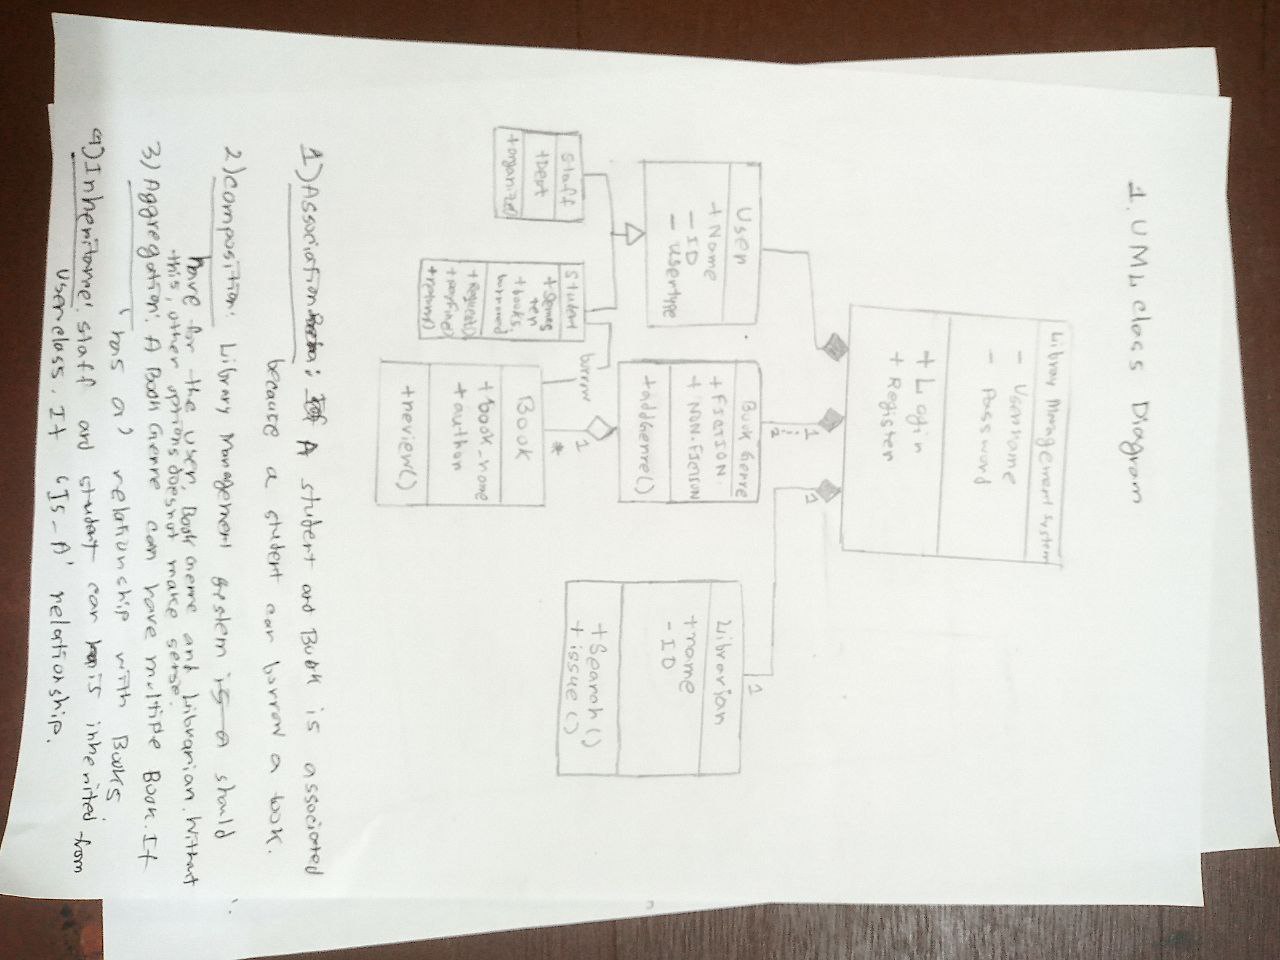 1. UML class Diagram
Libray Management System
- Username
- Password
+ Login
+ Register
1
1
:
2
1
User
+ Name
- ID
- Usertype
Book Genre
+ FICTION
+ NON-FICTION
+addGenre()
Librarian
+name
- ID
+Search()
+issue()
borrow
1
*
Staff
+Dept
+organize()
Student
+Semes
ter
+books
burrowed
+Request()
+payFine()
+return()
Book
+book_name
+author
+review()
1) Association: A student and Book is associated
because a student can borrow a book.
2) composition: Library Management system is a should
have for the user, Book Genre and Librarian. Without
this, other options doesnot make sense.
3) Aggregation: A Book Genre can have multiple Book. It
'has a' relationship with Books.
4) Inheritance: staff and student can is inherited from
User class. It 'Is-A' relationship.